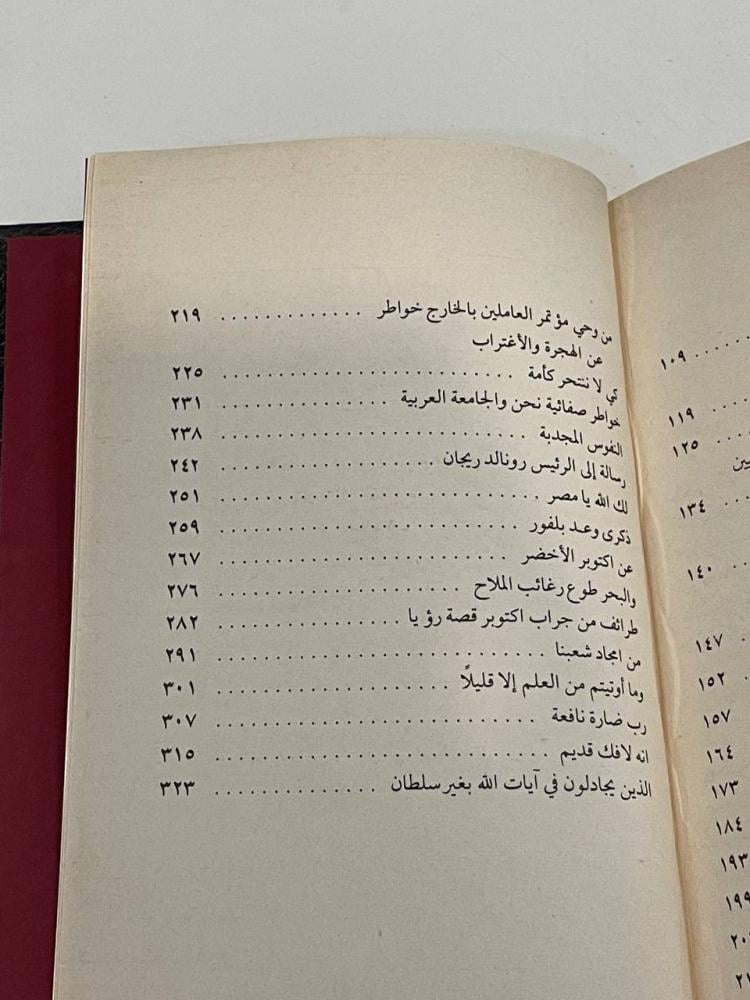 ١٠٩
١١٩
١٢٥
ين
١٣٤
١٤٠
١٤٧
١٥٢
١٥٧
١٦٤
١٧٣
١٨٤
١٩٣
١٩٩
من وحي مؤتمر العاملين بالخارج خواطر . . . . . . . . . . . . . ٢١٩
عن الهجرة والأغتراب
كي لا ننتحر كأمة . . . . . . . . . . . . . . . . . . . . . . . . . . ٢٢٥
خواطر صفائية نحن والجامعة العربية . . . . . . . . . . . . . . . ٢٣١
النفوس المجدبة . . . . . . . . . . . . . . . . . . . . . . . . . . . ٢٣٨
رسالة إلى الرئيس رونالد ريجان . . . . . . . . . . . . . . . . . . . ٢٤٢
لك الله يا مصر . . . . . . . . . . . . . . . . . . . . . . . . . . . . ٢٥١
ذكرى وعد بلفور . . . . . . . . . . . . . . . . . . . . . . . . . . . ٢٥٩
عن اكتوبر الأخضر . . . . . . . . . . . . . . . . . . . . . . . . . . ٢٦٧
والبحر طوع رغائب الملاح . . . . . . . . . . . . . . . . . . . . . . ٢٧٦
طرائف من جراب اكتوبر قصة رؤيا . . . . . . . . . . . . . . . . ٢٨٢
من امجاد شعبنا . . . . . . . . . . . . . . . . . . . . . . . . . . . . ٢٩١
وما أوتيتم من العلم إلا قليلًا . . . . . . . . . . . . . . . . . . . . ٣٠١
رب ضارة نافعة . . . . . . . . . . . . . . . . . . . . . . . . . . . . ٣٠٧
انه لافك قديم . . . . . . . . . . . . . . . . . . . . . . . . . . . . . ٣١٥
الذين يجادلون في آيات الله بغير سلطان . . . . . . . . . . . . . . ٣٢٣